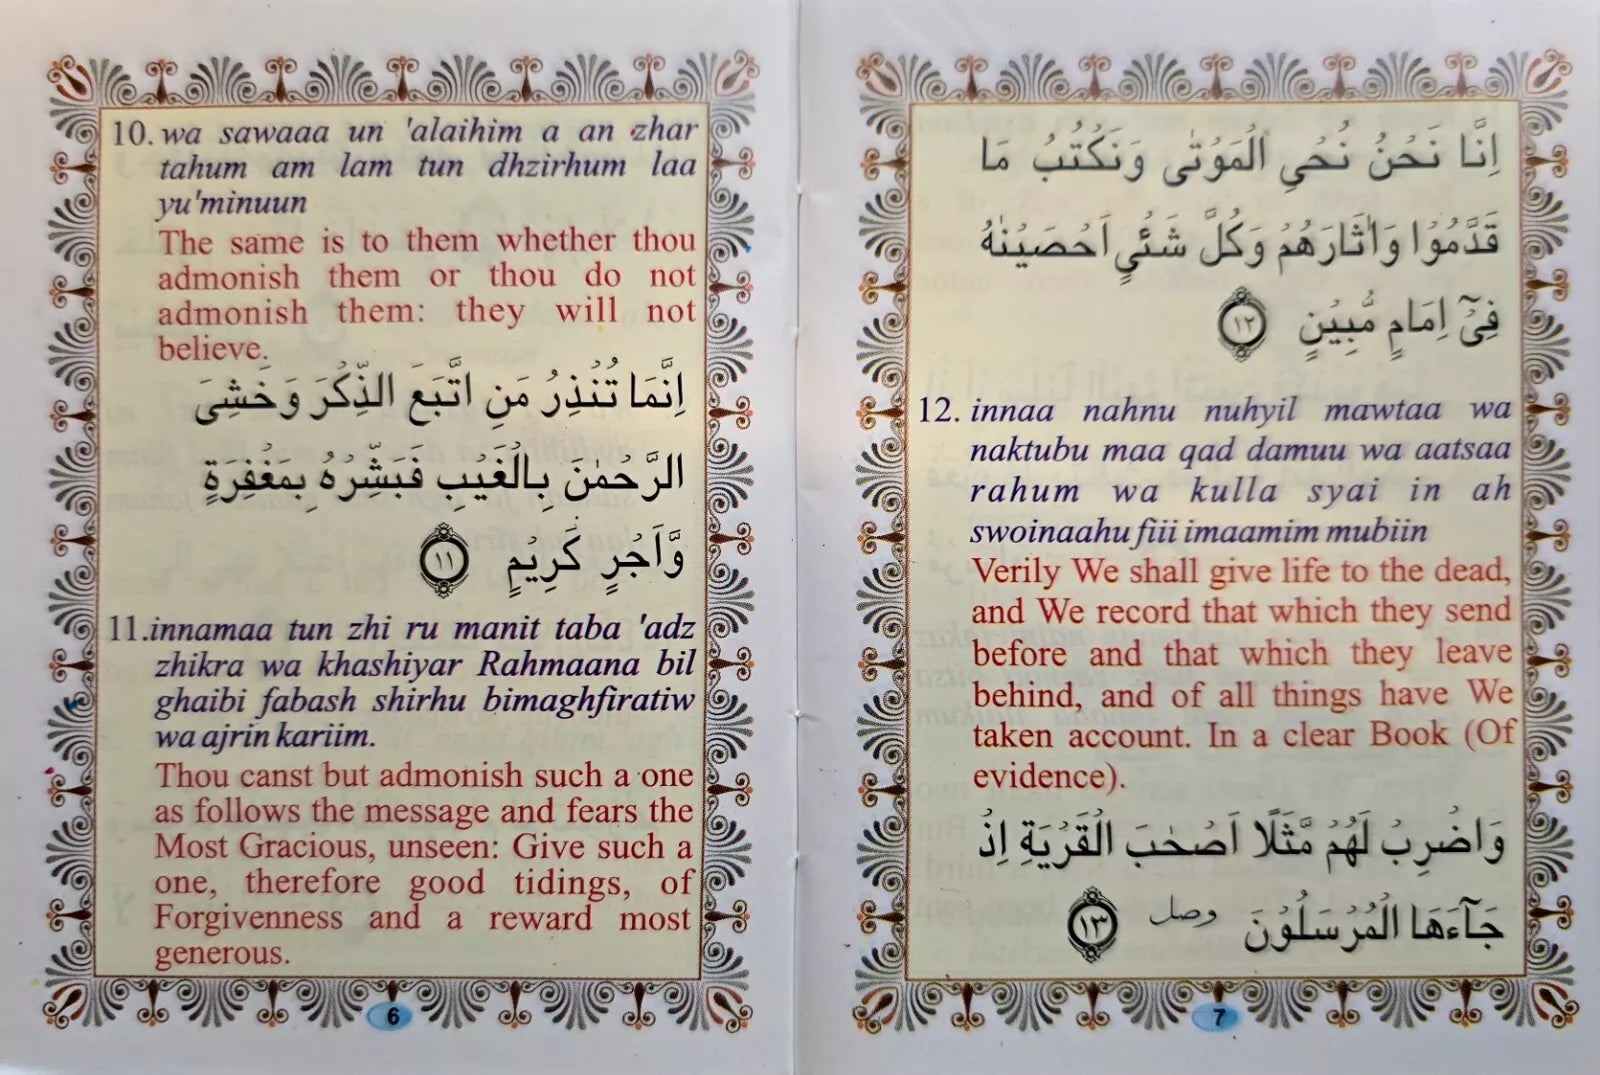 10. wa sawaaa un 'alaihim a an zhar
tahum am lam tun dhzirhum laa
yu'minuun
The same is to them whether thou
admonish them or thou do not
admonish them: they will not
believe.
اِنَّمَا تُنْذِرُ مَنِ اتَّبَعَ الذِّكْرَ وَخَشِىَ
الرَّحْمٰنَ بِالْغَيْبِ فَبَشِّرْهُ بِمَغْفِرَةٍ
وَّاَجْرٍ كَرِيْمٍ ١١
11.innamaa tun zhi ru manit taba 'adz
zhikra wa khashiyar Rahmaana bil
ghaibi fabash shirhu bimaghfiratiw
wa ajrin kariim.
Thou canst but admonish such a one
as follows the message and fears the
Most Gracious, unseen: Give such a
one, therefore good tidings, of
Forgivenness and a reward most
generous.
6
اِنَّا نَحْنُ نُحْيِ الْمَوْتٰى وَنَكْتُبُ مَا
قَدَّمُوْا وَاٰثَارَهُمْ وَكُلَّ شَئْيٍ اَحْصَيْنٰهُ
فِىْٓ اِمَامٍ مُّبِيْنٍ ١٢
12. innaa nahnu nuhyil mawtaa wa
naktubu maa qad damuu wa aatsaa
rahum wa kulla syai in ah
swoinaahu fiii imaamim mubiin
Verily We shall give life to the dead,
and We record that which they send
before and that which they leave
behind, and of all things have We
taken account. In a clear Book (Of
evidence).
وَاضْرِبْ لَهُمْ مَّثَلًا اَصْحٰبَ الْقَرْيَةِ اِذْ
جَآءَهَا الْمُرْسَلُوْنَ وصل ١٣
7